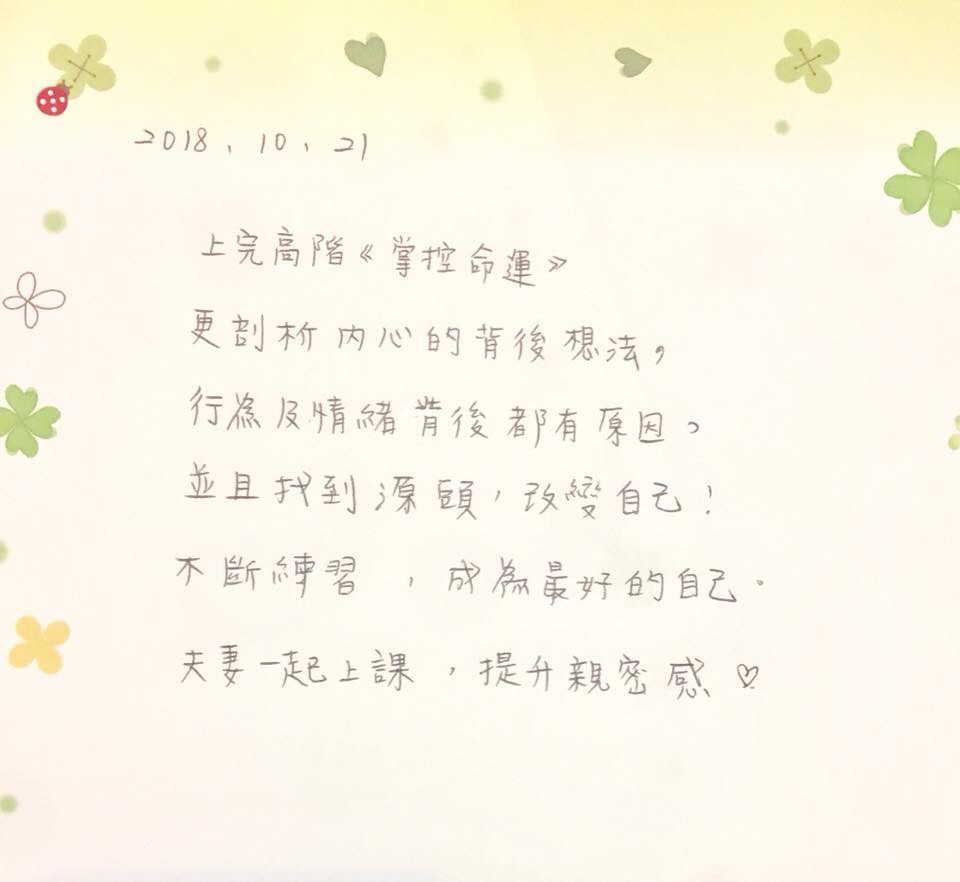 2018、10、21
上完高階《掌控命運》
更剖析內心的背後想法,
行為及情緒背後都有原因。
並且找到源頭,改變自己!
不斷練習 ,成為最好的自己.
夫妻一起上課 ,提升親密感♡